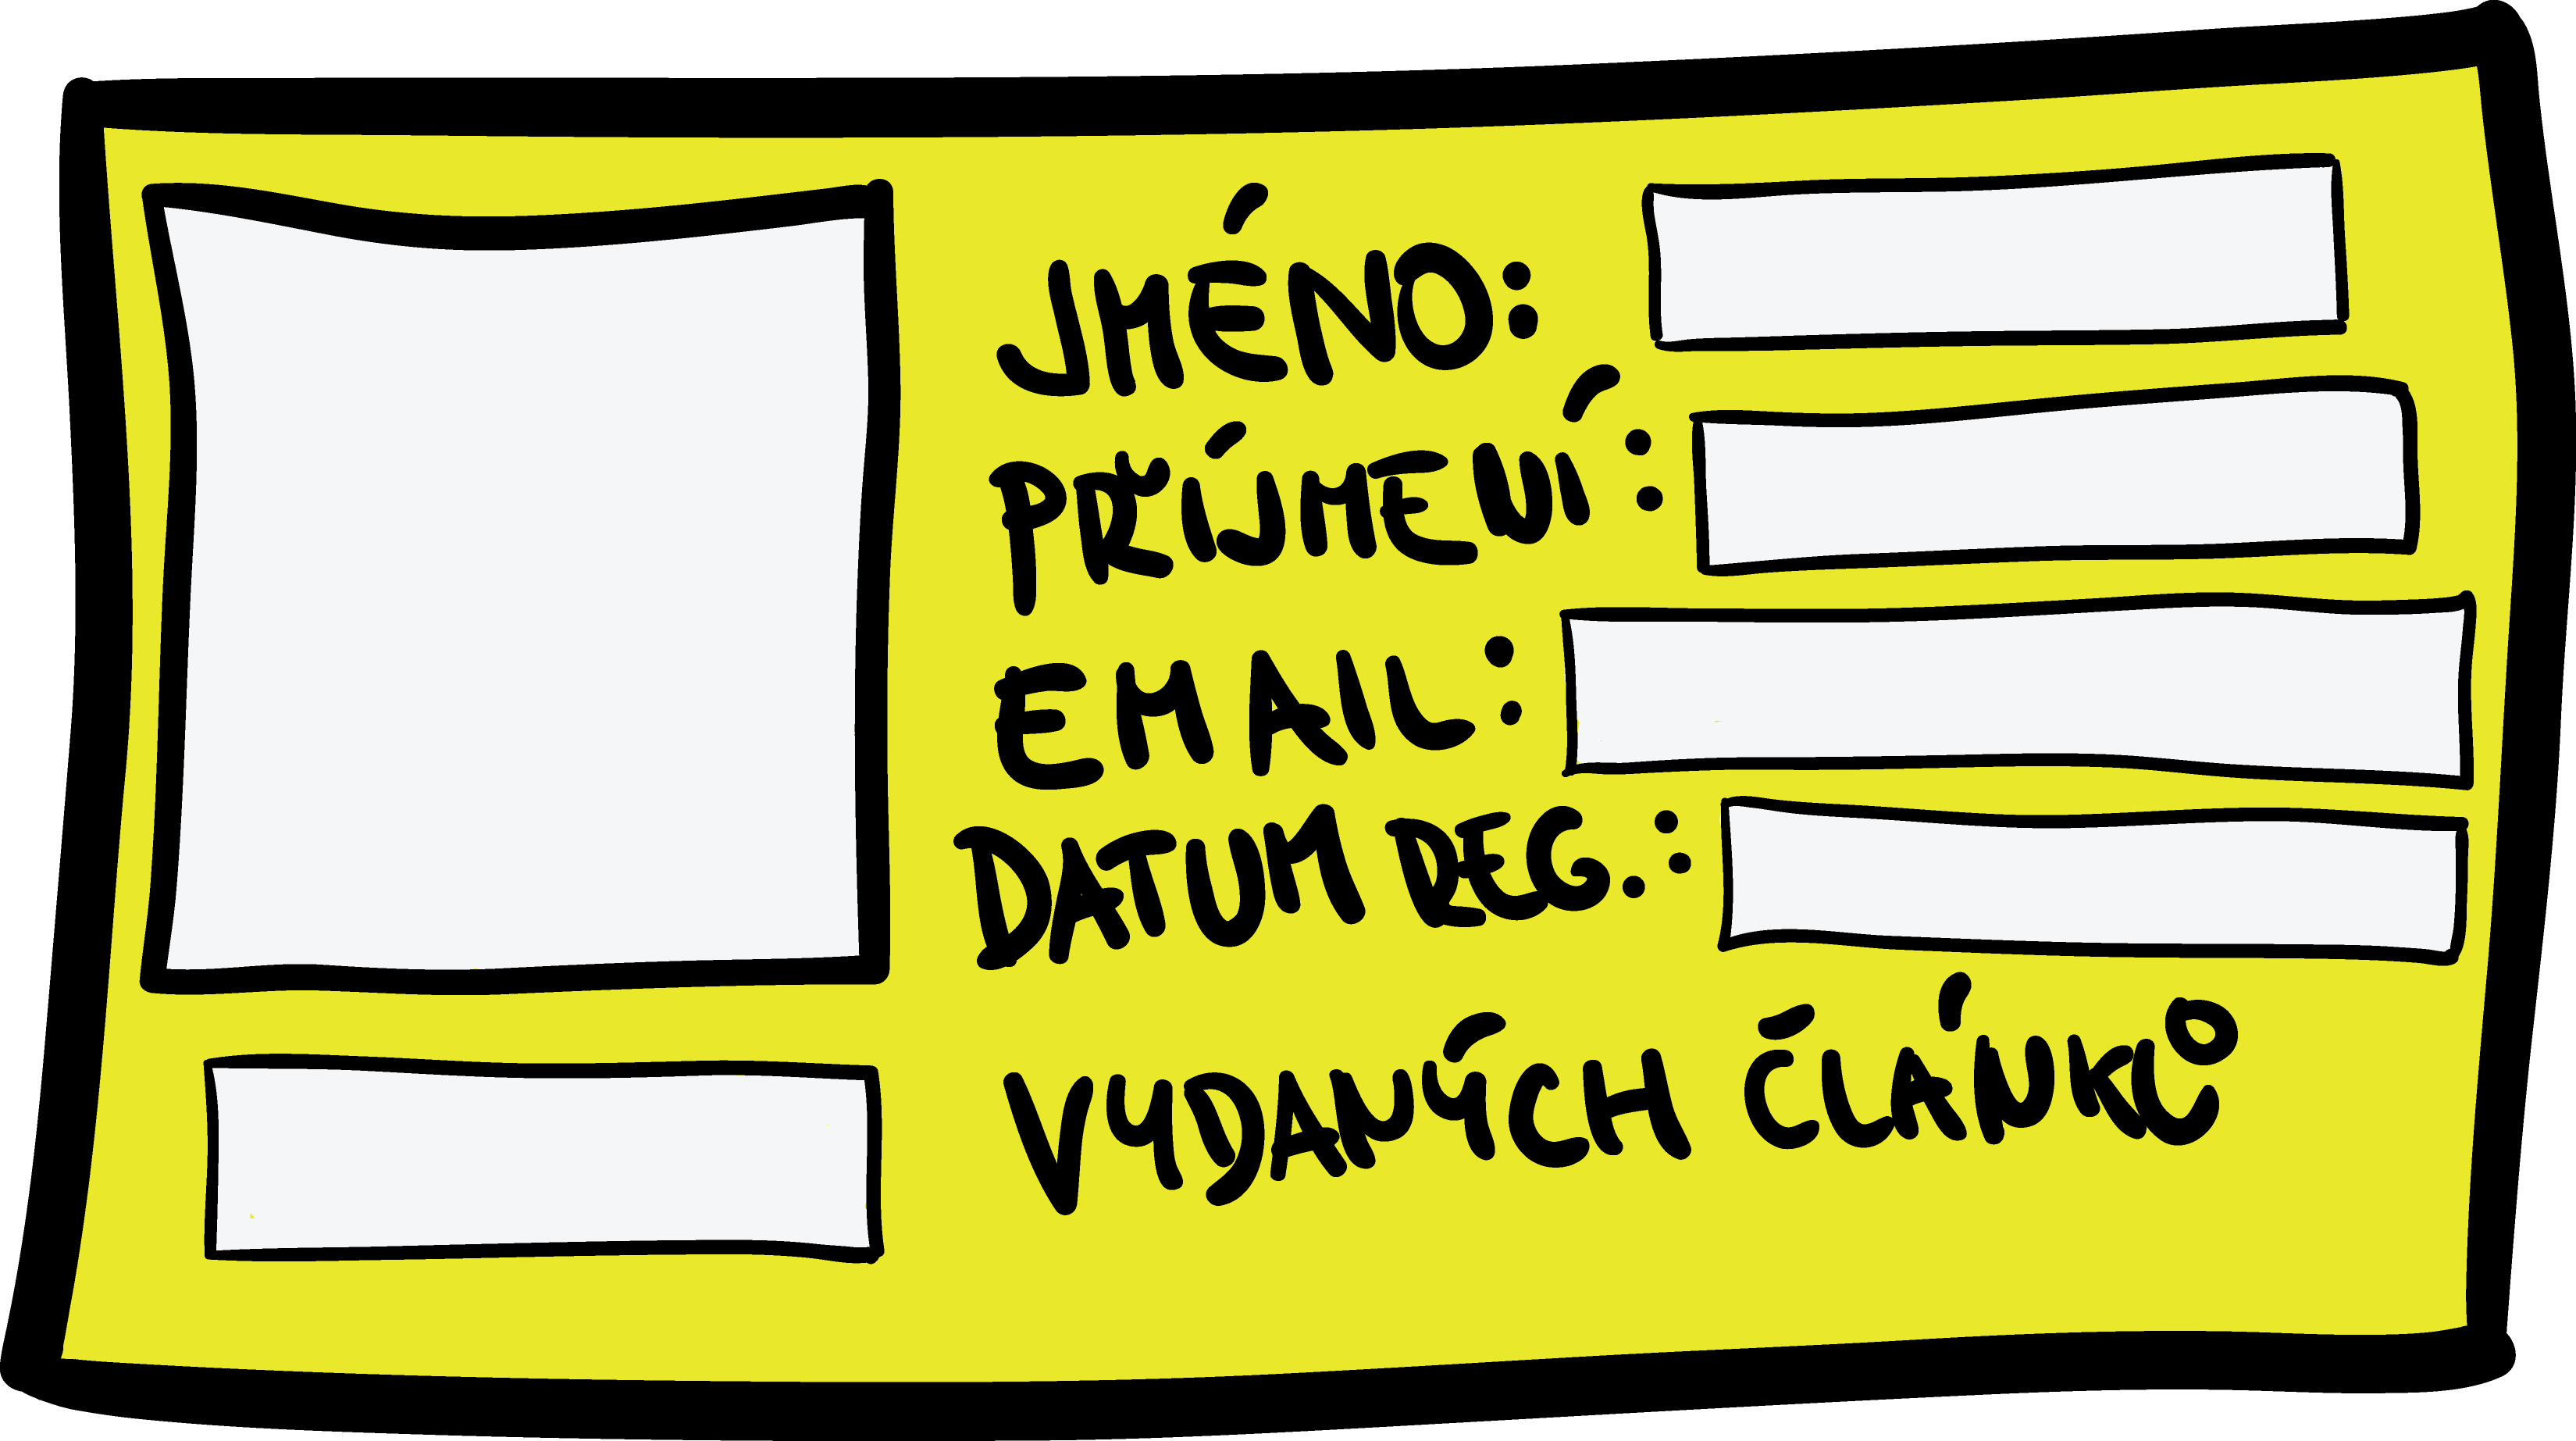 JMÉNO:
PŘÍJMENÍ:
EMAIL:
DATUM REG.:
VYDANÝCH ČLÁNKŮ